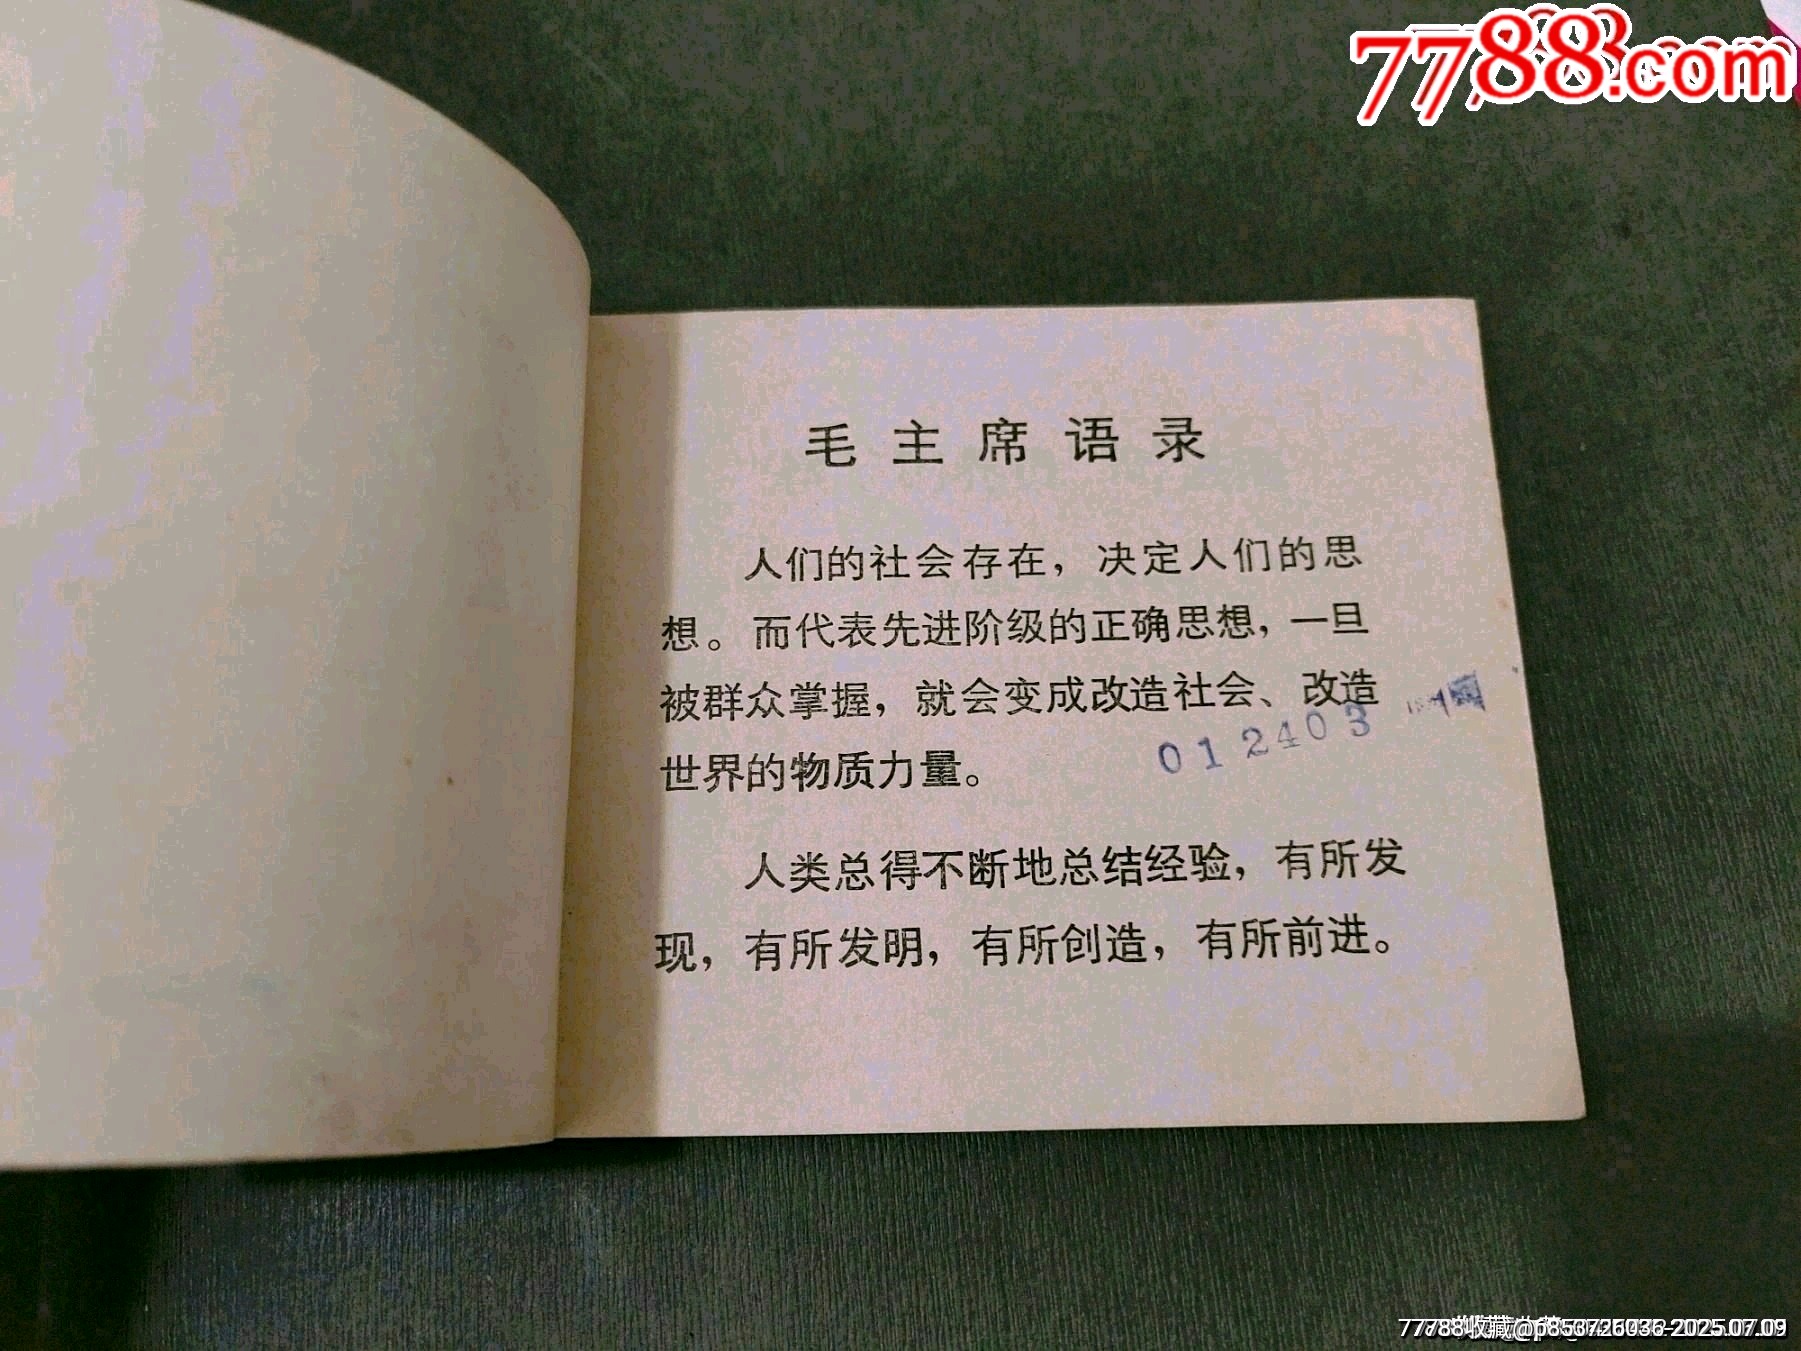 7788.com
毛主席语录
人们的社会存在，决定人们的思
想。而代表先进阶级的正确思想，一旦
被群众掌握，就会变成改造社会、改造
世界的物质力量。
012403
人类总得不断地总结经验，有所发
现，有所发明，有所创造，有所前进。